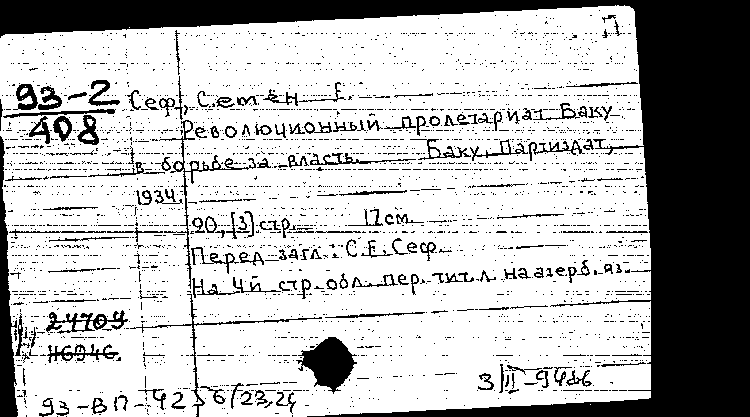 П
93-2
408
Сеф, Семён Е.
Революционный пролетариат Баку
в борьбе за власть. Баку, Партиздат,
1934.
90, [3] стр. 17 см.
Перед загл.: С.Е.Сеф.
На 4й стр. обл. пер. тит.л. на азерб. яз.
24709
93-ВП-42